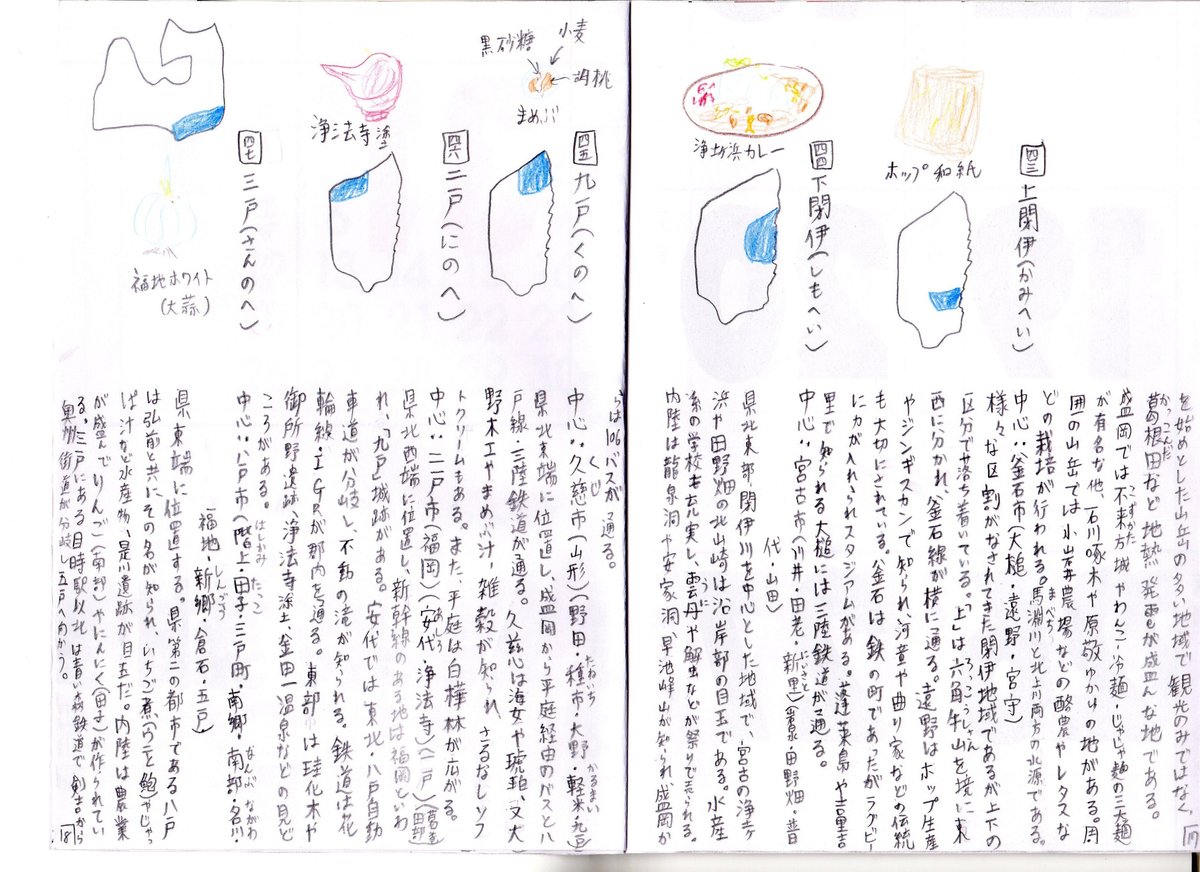 を始めとした山岳の多い地域で観光のみではなく、
葛根田など地熱発電が盛んな地である。
かっこんだ
盛岡では不来方城やわんこ・冷麺・じゃじゃ麺の三大麺
こずかた
が有名な他、石川啄木や原敬ゆかりの地がある。周
囲の山岳では小岩井農場などの酪農やレタスな
どの栽培が行われる。馬淵川と北上川両方の水源である。
まべち
17
四三 上閉伊(かみへい)
ホップ和紙
中心:釜石市(大槌・遠野・宮守)
様々な区割がなされてきた閉伊地域であるが上下の
区分で落ち着いている。「上」は六角牛山を境に東
ろっこうしさん
西に分かれ、釜石線が横に通る。遠野はホップ生産
やジンギスカンで知られ河童や曲り家などの伝統
も大切にされている。釜石は鉄の町であったがラグビー
に力が入れられスタジアムがある。蓬莱島や吉里吉
里で知られる大槌には三陸鉄道が通る。
四四 下閉伊(しもへい)
浄土ヶ浜カレー
中心:宮古市(川井・田老・新里)(岩泉・田野畑・普
にいさと
代・山田)
県北東部、閉伊川を中心とした地域で、宮古の浄土ヶ
浜や田野畑の北山崎は沿岸部の目玉である。水産
系の学校も充実し、雲丹や蟹などが祭りで売られる。
うに
内陸は龍泉洞や安家洞、早池峰山が知られ、盛岡か
らは106バスが通る。
四五 九戸(くのへ)
黒砂糖
小麦
胡桃
まめぶ
中心:久慈市(山形)(野田・種市・大野・軽米・九戸)
くじ
たねいち
かるまい
県北東端に位置し、盛岡から平庭経由のバスと八
戸線・三陸鉄道が通る。久慈は海女や琥珀、又大
野木工やまめぶ汁、雑穀が知られ、さるなしソフ
トクリームもある。また、平庭は白樺林が広がる。
四六 二戸(にのへ)
浄法寺塗
中心:二戸市(福岡)(安代・浄法寺)(一戸)
あしろ
県北西端に位置し、新幹線のある地は福岡といわ
れ、「九戸」城跡がある。安代では東北・八戸自動
車道が分岐し、不動の滝が知られる。鉄道は花
輪線・IGRが郡内を通る。東部は珪化木や
御所野遺跡、浄法寺漆、金田一温泉などの見ど
ころがある。
四七 三戸(さんのへ)
福地ホワイト
(大蒜)
中心:八戸市(階上・田子・三戸町・南郷・南部・名川・
はしかみ
たっこ
なんぶ
ながわ
福地・新郷・倉石・五戸)
しんごう
県東端に位置する。県第二の都市である八戸
は弘前と共にその名が知られ、いちご煮(うにと鮑)やじゃっ
ぱ汁など水産物、是川遺跡が目玉だ。内陸は農業
が盛んでりんご(南部)やにんにく(田子)が作られてい
る。三戸にある目時駅以北は青い森鉄道で、剣吉から
奥州街道が分岐し五戸へ向かう。
18